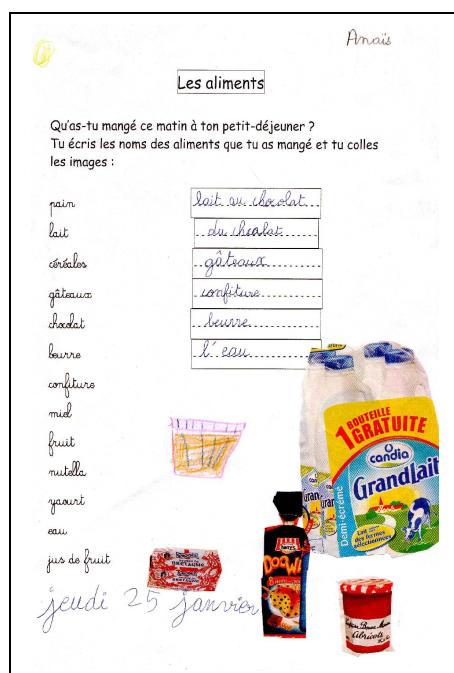 Anaïs
Les aliments
Qu'as-tu mangé ce matin à ton petit-déjeuner ?
Tu écris les noms des aliments que tu as mangé et tu colles
les images :
pain
lait
céréales
gâteaux
chocolat
beurre
confiture
miel
fruit
nutella
yaourt
eau
jus de fruit
lait au chocolat
du chcalat
gâteaux
confiture
beurre
l'eau
1 BOUTEILLE
GRATUITE
candia
GrandLait
Demi-écrémé
Lait
des fermes
sélectionnées
BRETAGNE
Bonne Maman
Abricots
jeudi 25 janvier